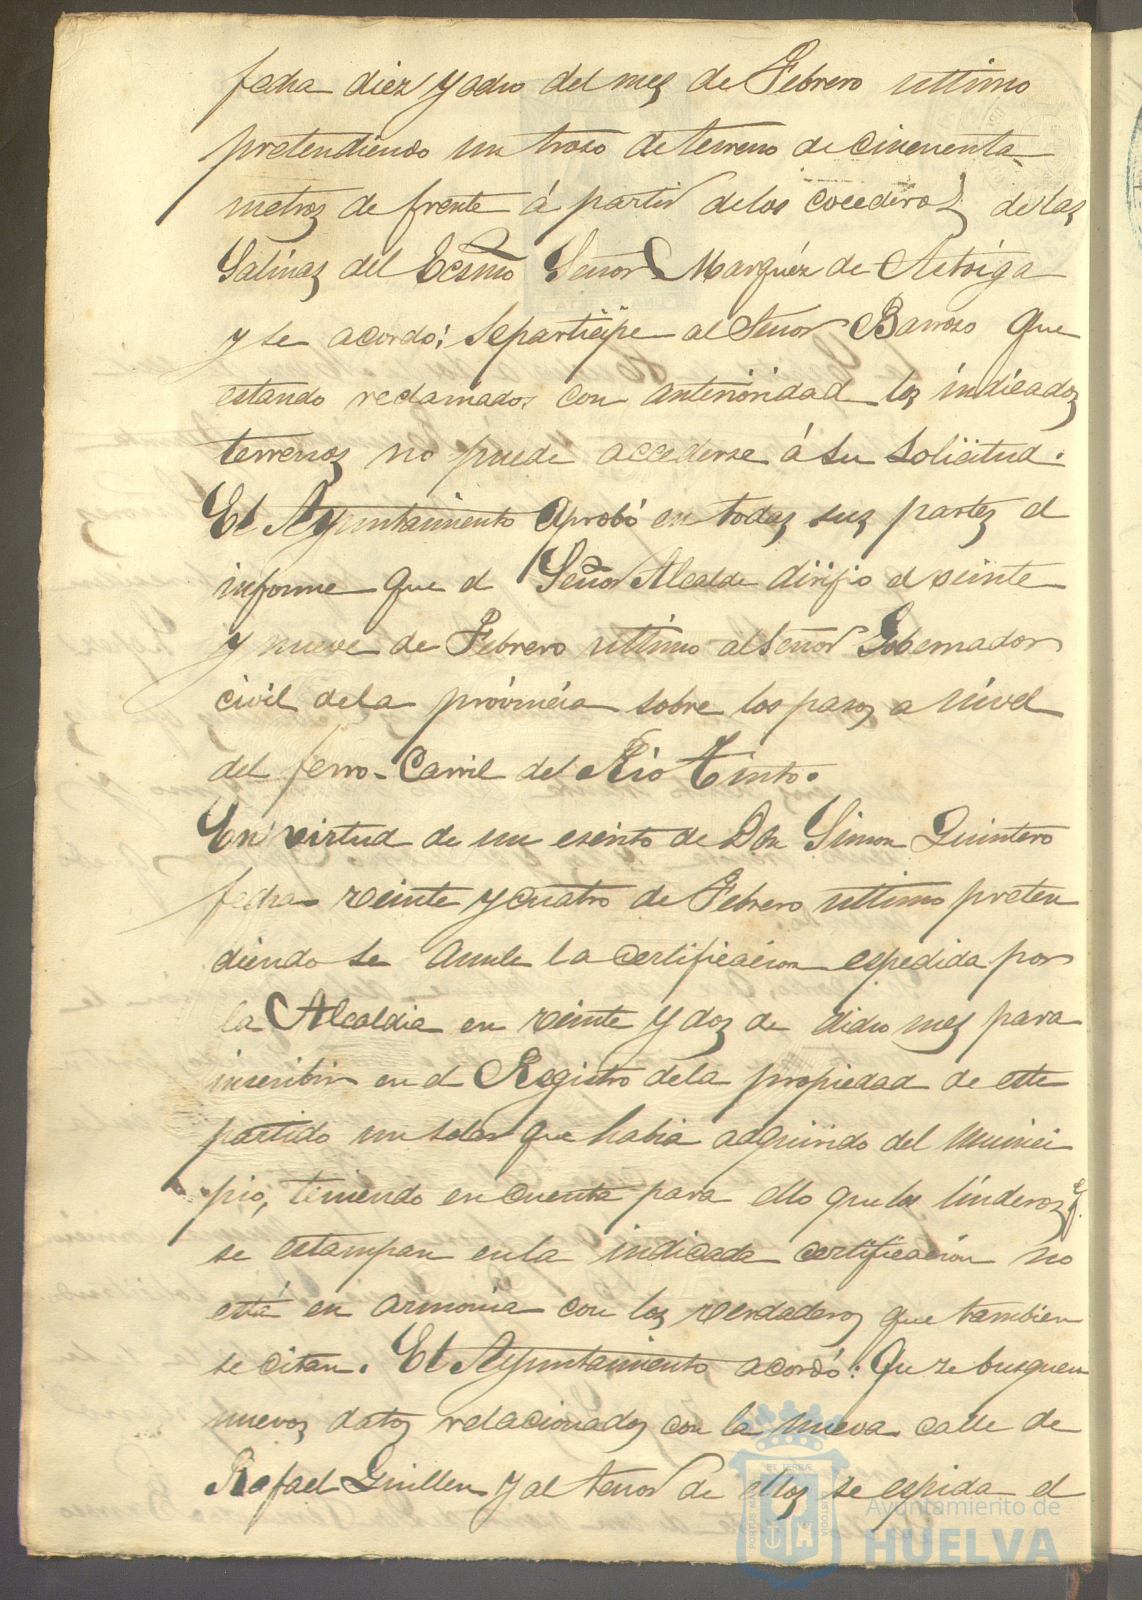 fecha diez y ocho del mes de Febrero ultimo
pretendiendo un troso de terreno de cincuenta
metros de frente á partir de los cocederos de las
Salinas del Ecsmo Señor Marquéz de Astorga
y se acordó; se participe al Señor Barroso que
estando reclamados con anterioridad los indicados
terrenos no puede accederse á su solicitud.
El Ayuntamiento aprobó en todas sus partes el
informe que el Señor Alcalde dirijio el veinte
y nueve de Febrero ultimo al Señor Gobernador
civil de la provincia sobre los pasos a nivel
del ferro-carril del Rio Tinto.
En virtud de un escrito de Don Simon Quintero
fecha veinte y cuatro de Febrero ultimo preten
diendo se anule la certificacion espedida por
la Alcaldia en veinte y dos de dicho mes para
inscribir en el Registro de la propiedad de este
partido un solar que habia adquirido del Munici
pio, teniendo en cuenta para ello que los linderos q.
se estampan en la indicada certificacion no
está en armonia con los verdaderos que tambien
se citan. El Ayuntamiento acordó: Que se busquen
nuevos datos relacionados con la nueva calle de
Rafael Guillen y al tenor de ellos se espida el
Ayuntamiento de
HUELVA